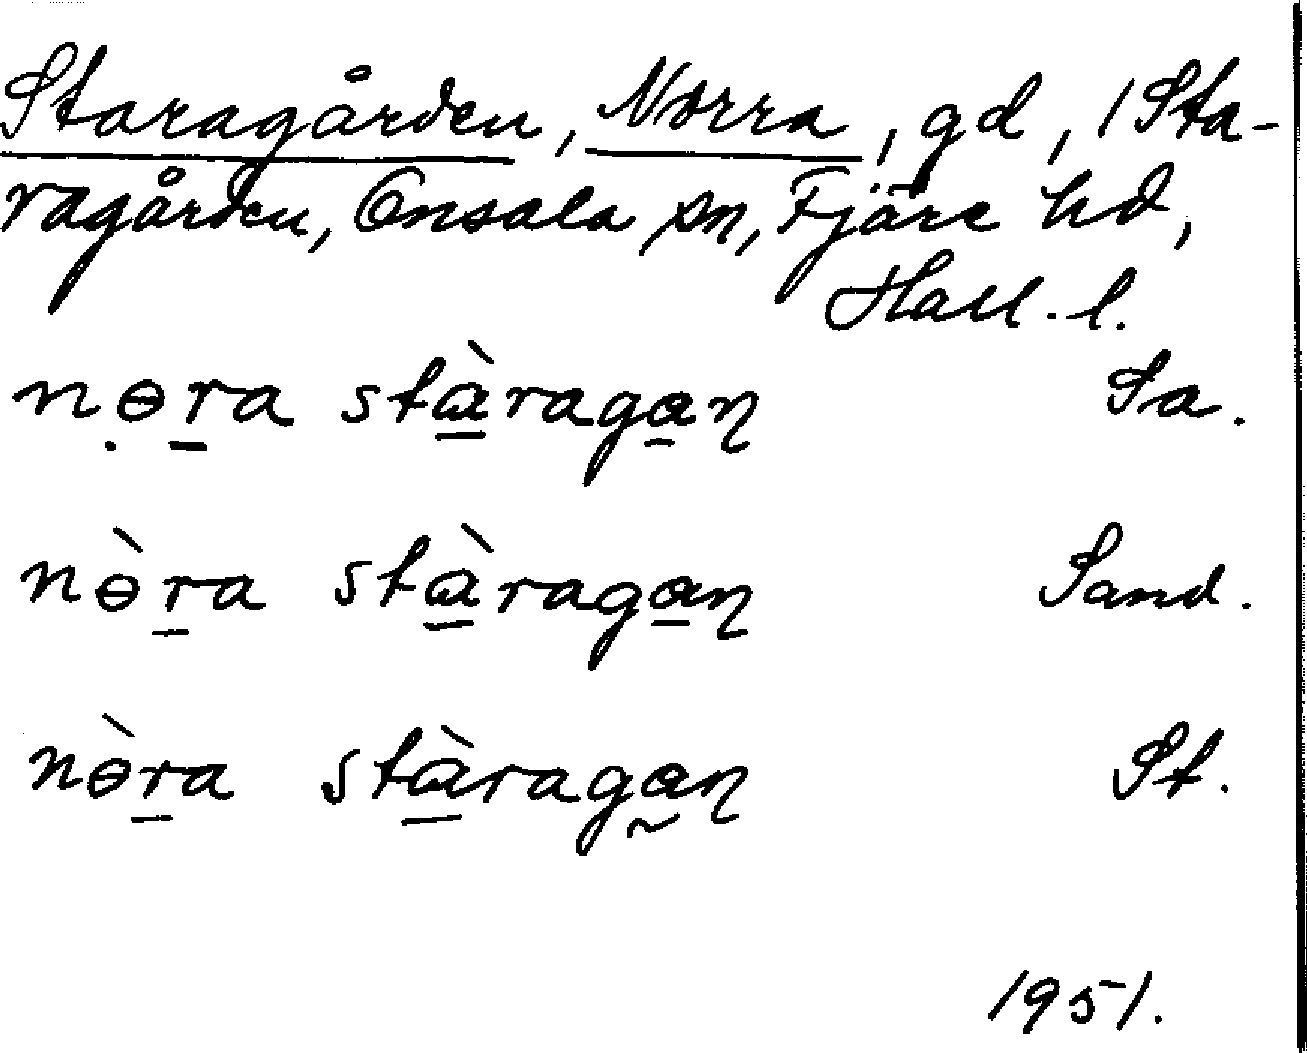 Staragården, Norra, gd, 1 Sta-
ragården, Onsala sn, Fjäre hd,
Hall. l.
nɵra stàragan̨ Sa.
nɵ̀ra stàragan̨ Sand.
nɵ̀ra stàragan̨ St.
1951.